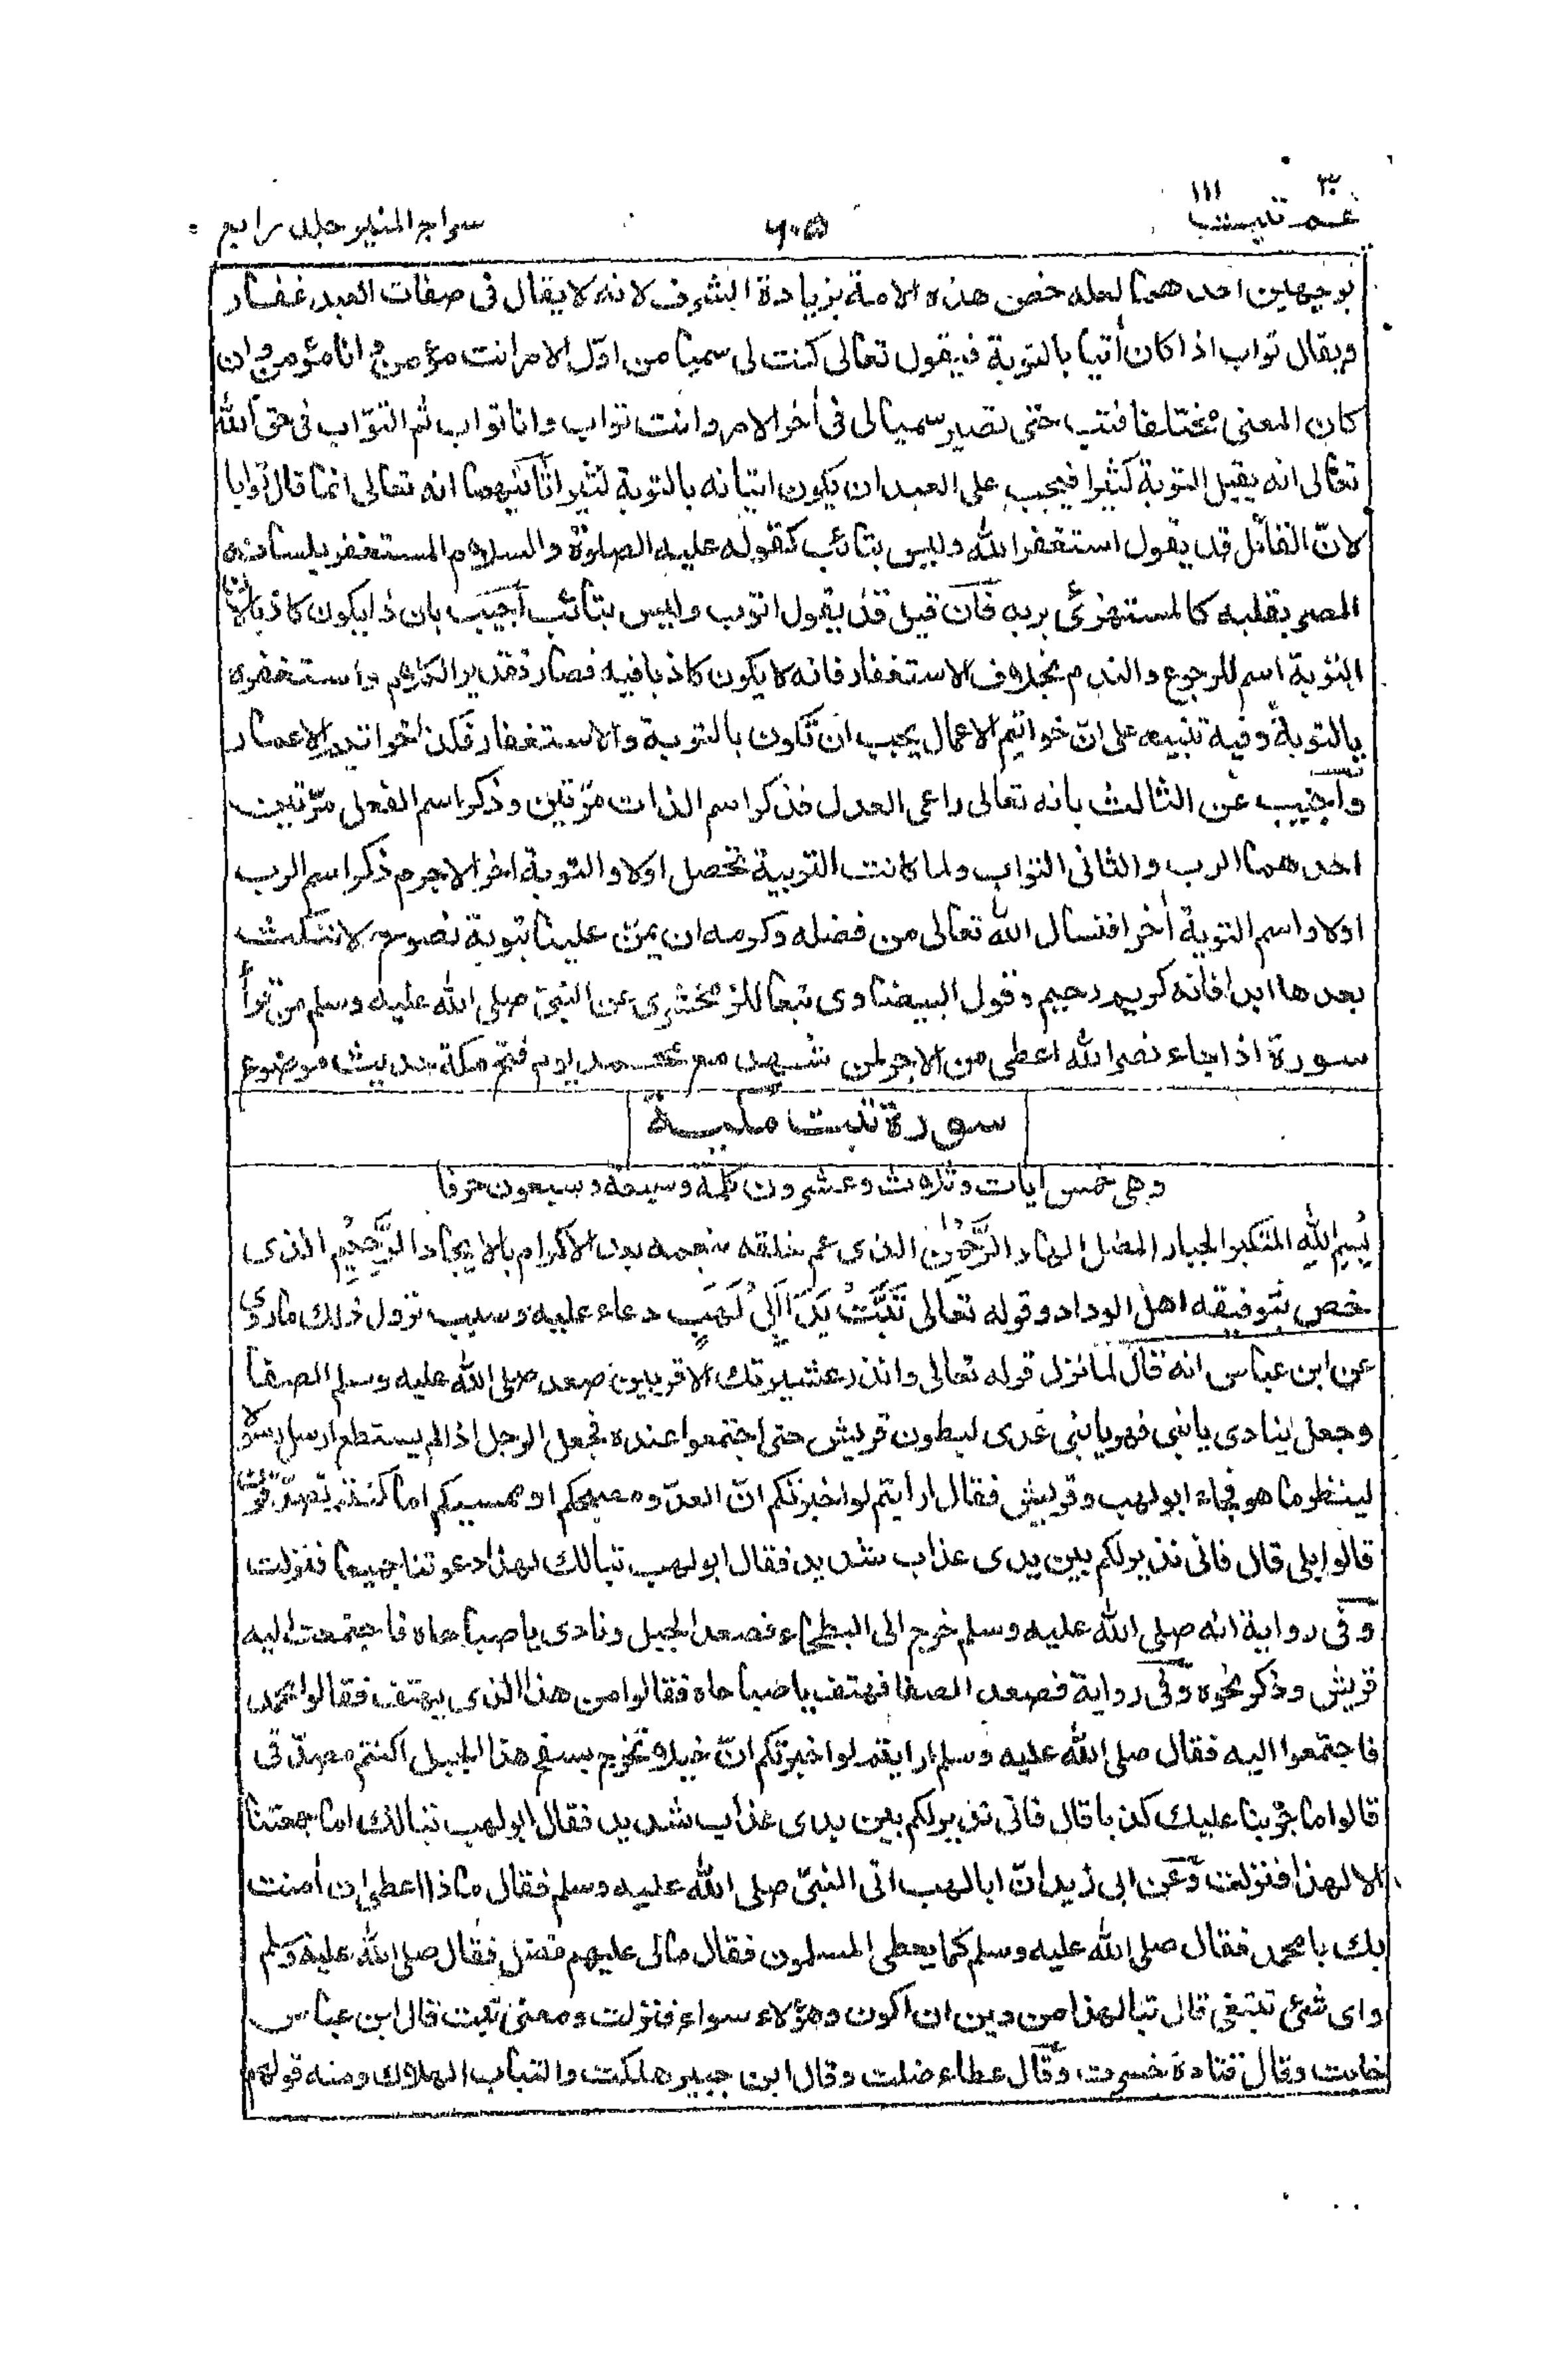 ٣٠ ١١١
عم تبت ٦٠٥ سراج المنير جلد رابع
بوجهين احدهما لعله خص هذه الامة بزيادة الشرف لانه لا يقال فى صفات العبد غفار
ويقال تواب اذا كان أتيا بالتوبة فيقول تعالى كنت لى سميا من اوّل الامر انت مؤمن وانا مؤمن وان
كان المعنى مختلفا فتب حتى تصير سميا لى فى أخر الامر وانت تواب وانا تواب ثم التوّاب فى حق الله
تعالى انه يقبل التوبة كثيرا فيجب على العبد ان يكون اتيانه بالتوبة كثيرا ثانيهما انه تعالى انما قال توابا
لانّ القائل قد يقول استغفر الله وليس بتائب كقوله عليه الصلوة والسلام المستغفر بلسانه
المصر بقلبه كالمستهزئ بربه فان قيل قد يقول اتوب وليس بتائب أجيب بان ذا يكون كاذبا لانّ
التوبة اسم للرجوع والندم بخلاف الاستغفار فانه لا يكون كاذبا فيه فصار تقدير الكلام واستغفره
بالتوبة وفيه تنبيه على انّ خواتيم الاعمال يجب ان تكون بالتوبة والاستغفار فكذا خواتيم الاعمار
وأجيب عن الثالث بانه تعالى راعى العدل فذكر اسم الذات مرّتين وذكر اسم الفعل مرّتين
احدهما الرب والثانى التواب ولما كانت التربية تحصل اولا والتوبة اخرا لاجرم ذكر اسم الرب
اولا واسم التوبة أخرا فنسال الله تعالى من فضله وكرمه ان يمنّ علينا بتوبة نصوح لا ننكث
بعدها ابدا فانه كريم رحيم وقول البيضاوى تبعا للزمخشرى عن النبىّ صلى الله عليه وسلم من قرأ
سورة اذا جاء نصر الله اعطى من الاجر كمن شهد مع محمد يوم فتح مكة حديث موضوع
سورة تبت مكية
وهى خمس أيات وثلاث وعشرون كلمة وسبعة وسبعون حرفا
بِسْمِ اللهِ المتكبر الجبار المضل الهاد الرَّحْمٰنِ الذى عم خلقه بنعمه بعد الاكرام بالايجاد الرَّحِيْمِ الذى
خص بتوفيقه اهل الوداد وقوله تعالى تَبَّتْ يَدَا اَبِيْ لَهَبٍ دعاء عليه وسبب نزول ذلك ما روى
عن ابن عباس انه قال لما نزل قوله تعالى وانذر عشيرتك الاقربين صعد صلى الله عليه وسلم الصفا
وجعل ينادى يا بنى فهر يا بنى عدى لبطون قريش حتى اجتمعوا عنده فجعل الرجل اذا لم يستطع ارسل رسولا
لينظر ما هو فجاء ابو لهب وقريش فقال ارأيتم لو اخبرتكم انّ العدوّ مصبحكم او ممسيكم اما كنتم تصدّقونى
قالوا بلى قال فانى نذير لكم بين يدى عذاب شديد فقال ابو لهب تبا لك لهذا دعوتنا جميعا فنزلت
وفى رواية انه صلى الله عليه وسلم خرج الى البطحاء فصعد الجبل ونادى يا صباحاه فاجتمعت اليه
قريش وذكر نحوه وفى رواية فصعد الصفا فهتف يا صباحاه فقالوا من هذا الذى يهتف فقالوا محمد
فاجتمعوا اليه فقال صلى الله عليه وسلم ارايتم لو اخبرتكم انّ خيلا تخرج بسفح هذا الجبل اكنتم مصدّقى
قالوا ما جرّبنا عليك كذبا قال فانى نذير لكم بين يدى عذاب شديد فقال ابو لهب تبا لك اما جمعتنا
الا لهذا فنزلت وعن ابى زيد انّ ابا لهب اتى النبىّ صلى الله عليه وسلم فقال ماذا اعطى ان أمنت
بك يا محمد فقال صلى الله عليه وسلم كما يعطى المسلمون فقال مالى عليهم فضل فقال صلى الله عليه وسلم
واى شئ تبتغى قال تبا لهذا من دين ان اكون وهؤلاء سواء فنزلت ومعنى تبت قال ابن عباس
خابت وقال قتادة خسرت وقال عطاء ضلت وقال ابن جبير هلكت والتباب الهلاك ومنه قولهم